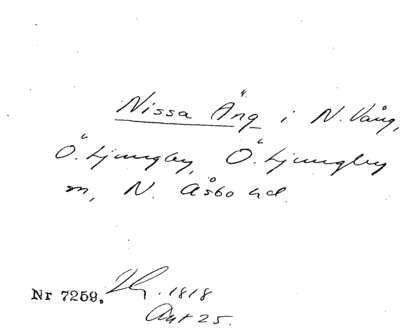 Nissa Äng i N. Vång,
Ö. Ljungby, Ö. Ljungby
sn, N. Åsbo hd.
Nr 7259. 1818
Akt 25.